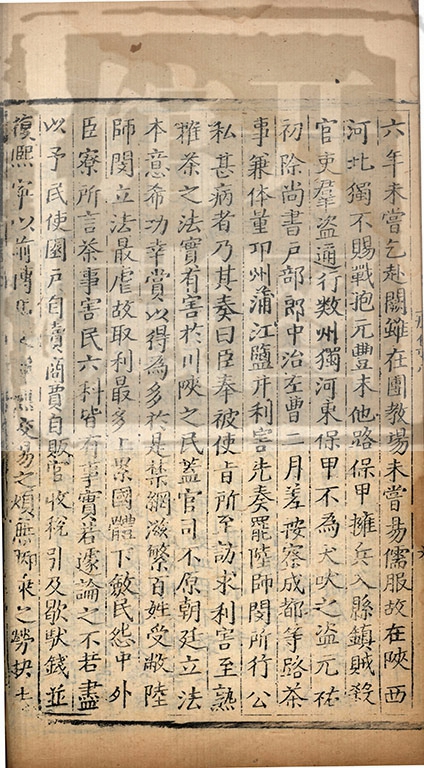 六年未嘗乞赴闕雖在團教場未嘗易儒服故在陝西
河北獨不賜戰袍元豊末他路保甲擁兵入縣鎮賊殺
官吏羣盜通行数州獨河東保甲不為犬吠之盜元祐
初除尚書户部郎中治左曹二月差按察成都等路茶
事兼体量卭州蒲江鹽井利害先奏罷陸師閔所行公
私甚病者乃其奏曰臣奉被使旨所至訪求利害至熟
榷茶之法實有害於川陝之民蓋官司不原朝廷立法
本意希功幸賞以得為多於是禁網滋繁百姓受敝陸
師閔立法最虐故取利最多上累國體下斂民怨中外
臣寮所言茶事害民六科皆有事實若遽論之不若盡
以予民使園户自賣商賈自販官收稅引及歇馱錢並
復熈寧以前博馬之
易之煩無
之勞